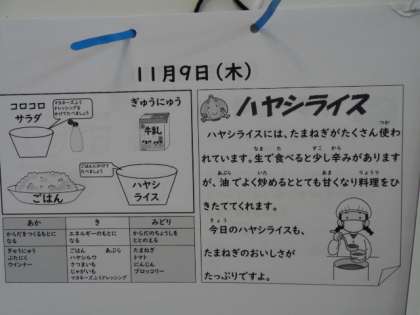 11月9日(木)
コロコロ
サラダ
マヨネーズふう
ドレッシングを
かけてたべましょう
ぎゅうにゅう
牛乳
ごはんにかけて
たべましょう
ごはん
ハヤシ
ライス
あか
き
みどり
からだをつくるもとに
なる
エネルギーのもとに
なる
からだのちょうしを
ととのえる
ぎゅうにゅう
ぶたにく
ウインナー
ごはん あぶら
ハヤシルウ
さつまいも
じゃがいも
マヨネーズふうドレッシング
たまねぎ
トマト
にんじん
ブロッコリー
ハヤシライス
ハヤシライスには、たまねぎがたくさん使(つか)わ
れています。生(なま)で食(た)べると少(すこ)し辛(から)みがあります
が、油(あぶら)でよく炒(いた)めるととても甘(あま)くなり料理(りょうり)をひ
きたててくれます。
今日(きょう)のハヤシライスも、
たまねぎのおいしさが
たっぷりですよ。